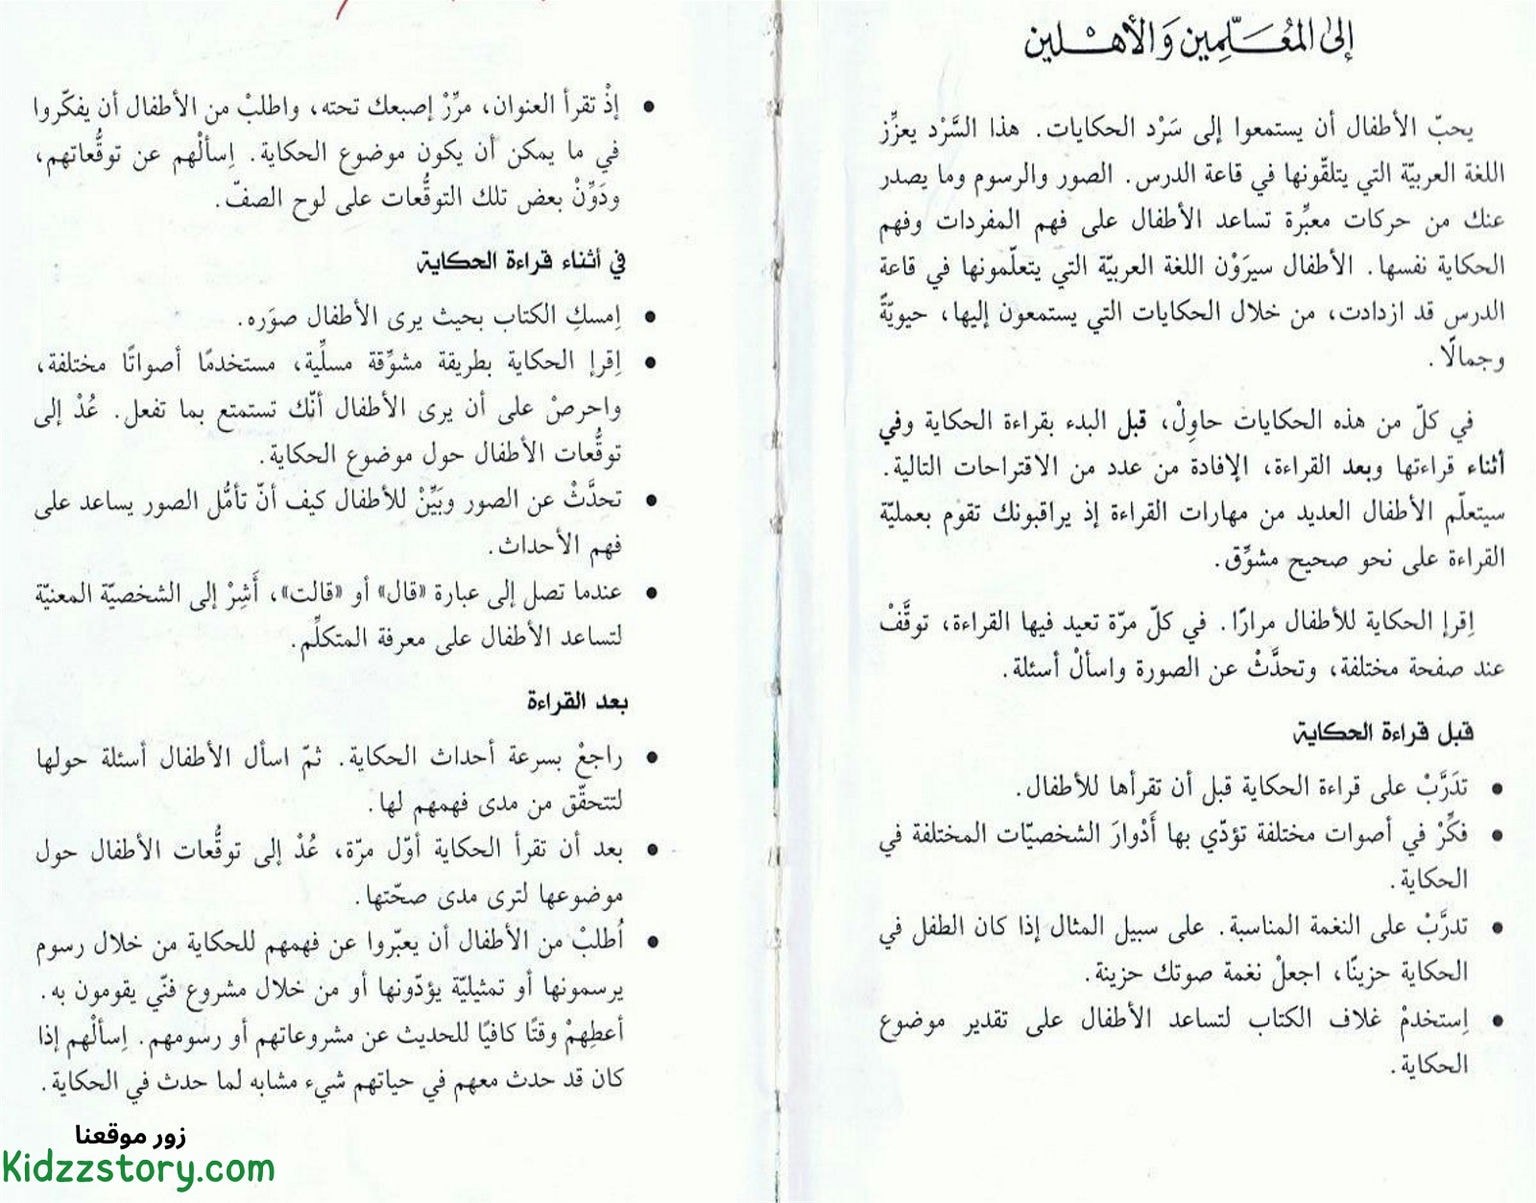 إلى المُعَلِّمِين وَالأهلين
يحبّ الأطفال أن يستمعوا إلى سَرْد الحكايات. هذا السَّرْد يعزِّز
اللغة العربيّة التي يتلقّونها في قاعة الدرس. الصور والرسوم وما يصدر
عنك من حركات معبِّرة تساعد الأطفال على فهم المفردات وفهم
الحكاية نفسها. الأطفال سيرَوْن اللغة العربيّة التي يتعلّمونها في قاعة
الدرس قد ازدادت، من خلال الحكايات التي يستمعون إليها، حيويّةً
وجمالًا.
في كلّ من هذه الحكايات حاوِلْ، قبل البدء بقراءة الحكاية وفي
أثناء قراءتها وبعد القراءة، الإفادة من عدد من الاقتراحات التالية.
سيتعلّم الأطفال العديد من مهارات القراءة إذ يراقبونك تقوم بعمليّة
القراءة على نحو صحيح مشوِّق.
اِقرإ الحكاية للأطفال مرارًا. في كلّ مرّة تعيد فيها القراءة، توقَّفْ
عند صفحة مختلفة، وتحدَّثْ عن الصورة واسألْ أسئلة.
قبل قراءة الحكاية
• تدَرَّبْ على قراءة الحكاية قبل أن تقرأها للأطفال.
• فكِّرْ في أصوات مختلفة تؤدّي بها أَدْوارَ الشخصيّات المختلفة في
الحكاية.
• تدرَّبْ على النغمة المناسبة. على سبيل المثال إذا كان الطفل في
الحكاية حزينًا، اجعلْ نغمة صوتك حزينة.
• اِستخدمْ غلاف الكتاب لتساعد الأطفال على تقدير موضوع
الحكاية.
• إذْ تقرأ العنوان، مرِّرْ إصبعك تحته، واطلبْ من الأطفال أن يفكّروا
في ما يمكن أن يكون موضوع الحكاية. اِسألْهم عن توقُّعاتهم،
ودَوِّنْ بعض تلك التوقُّعات على لوح الصفّ.
في أثناء قراءة الحكاية
• اِمسكِ الكتاب بحيث يرى الأطفال صوَره.
• اِقرإ الحكاية بطريقة مشوِّقة مسلِّية، مستخدمًا أصواتًا مختلفة،
واحرصْ على أن يرى الأطفال أنّك تستمتع بما تفعل. عُدْ إلى
توقُّعات الأطفال حول موضوع الحكاية.
• تحدَّثْ عن الصور وبَيِّنْ للأطفال كيف أنّ تأمُّل الصور يساعد على
فهم الأحداث.
• عندما تصل إلى عبارة «قال» أو «قالت»، أَشِرْ إلى الشخصيّة المعنيّة
لتساعد الأطفال على معرفة المتكلِّم.
بعد القراءة
• راجعْ بسرعة أحداث الحكاية. ثمّ اسأل الأطفال أسئلة حولها
لتتحقّق من مدى فهمهم لها.
• بعد أن تقرأ الحكاية أوّل مرّة، عُدْ إلى توقُّعات الأطفال حول
موضوعها لترى مدى صحّتها.
• اُطلبْ من الأطفال أن يعبّروا عن فهمهم للحكاية من خلال رسوم
يرسمونها أو تمثيليّة يؤدّونها أو من خلال مشروع فنّي يقومون به.
أعطِهمْ وقتًا كافيًا للحديث عن مشروعاتهم أو رسومهم. اِسألْهم إذا
كان قد حدث معهم في حياتهم شيء مشابه لما حدث في الحكاية.
زور موقعنا
Kidzzstory.com